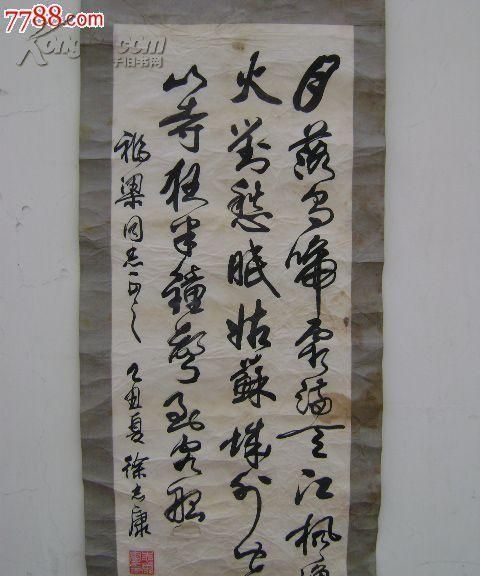 7788.com
Kongfz.com
孔夫子旧书网
月落乌啼霜满天江枫渔
火对愁眠姑苏城外寒
山寺夜半钟声到客船
同志正之
乙丑夏 徐志康